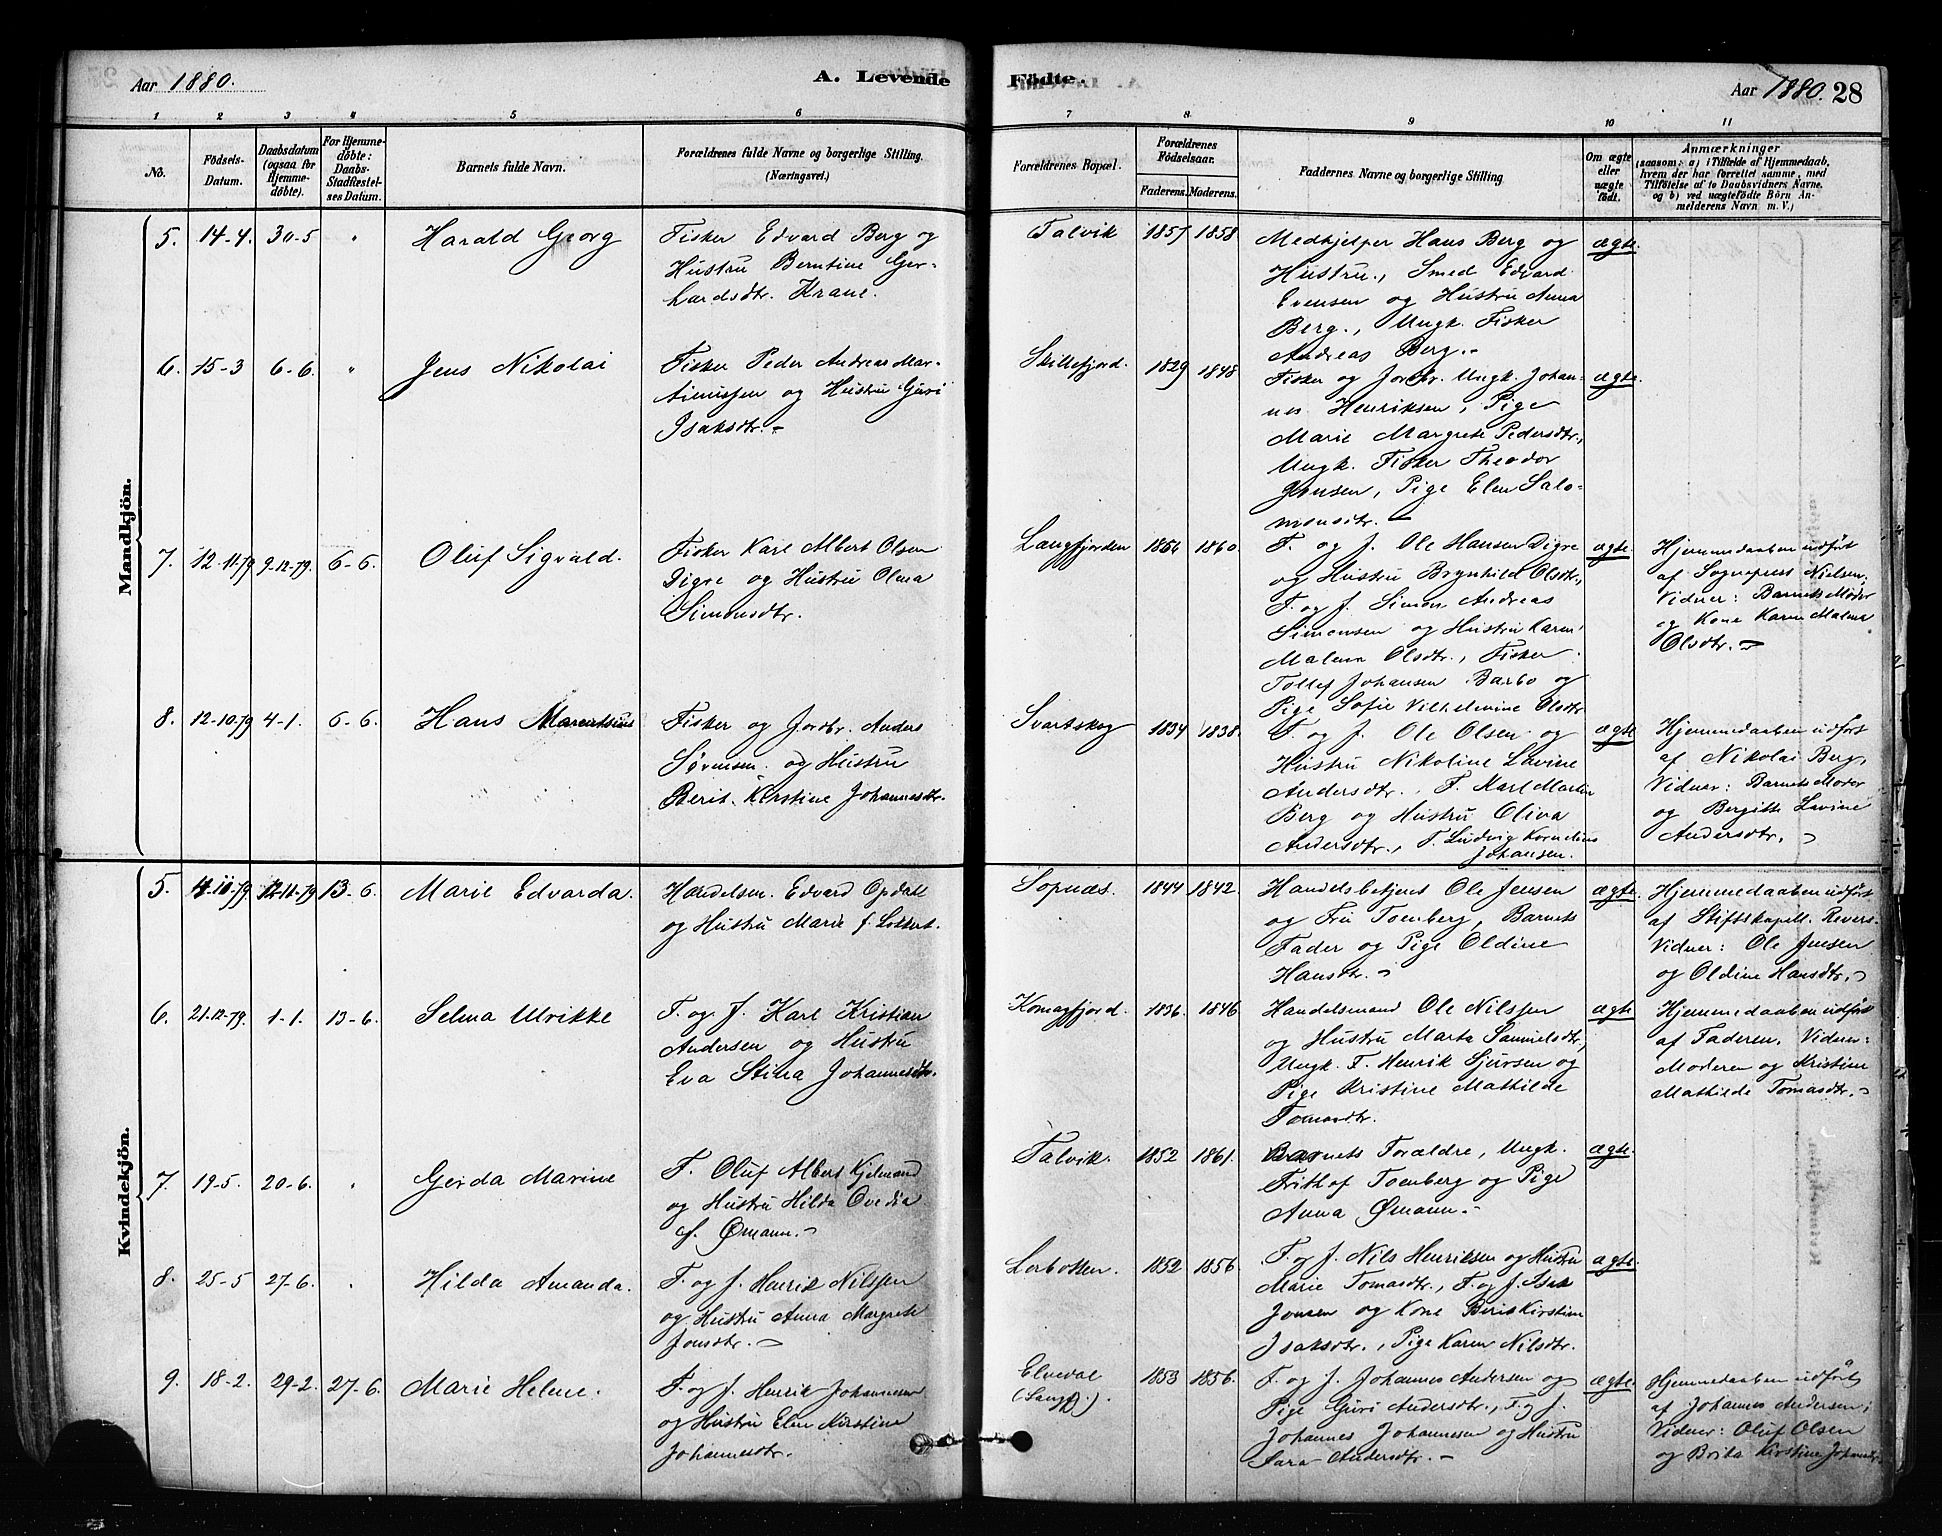 Aar 1880.
A. Levende
Födte.
Aar 1880. 28
1 2 3 4 5 6 7 8 9 10 11
No.
Födsels-
Datum.
Daabsdatum
(ogsaa for
Hjemme-
døbte).
For Hjemme-
døbte:
Daabs-
Stadfestel-
ses Datum.
Barnets fulde Navn.
Forældrenes fulde Navne og borgerlige Stilling.
(Næringsvei.)
Forældrenes Bopæl.
Forældrenes
Födselsaar.
Faderens. Moderens.
Faddernes Navne og borgerlige Stilling
Om ægte
eller
uægte
födt.
Anmærkninger
(saasom: a) i Tilfælde af Hjemmedaab,
hvem der har forrettet samme, med
Tilföielse af to Daabsvidners Navne,
og b) ved uægtefödte Börn An-
melderens Navn m. V.)
Mandkjön.
5. 14-4. 30-5 " Harald Georg
Fisker Edvard Berg og
Hustru Berntine Ger-
hardsdtr. Krane.
Talvik 1857 1858
Medhjelper Hans Berg og
Hustru., Smed Edvard
Evensen og Hustru Anna
Berg., Ungk. Fisker
Andreas Berg.-
ægte
6. 15-3 6-6. " Jens Nikolai
Fisker Peder Andreas Mar-
tinussen og Hustru Guri
Isaksdtr.-
Skillefjord. 1829 1848
Fisker og Jordbr. Ungk. Johan-
nes Henriksen, Pige
Marie Margrete Pedersdtr.,
Ungk. Fisker Theodor
Jensen, Pige Elen Salo-
monsdtr.-
ægte
7. 12-11-79 9-12-79. 6-6. Oluf Sigvald.
Fisker Karl Albert Olsen
Digre og Hustru Olma
Simonsdtr.
Langfjorden 1854 1860.
F. og J. Ole Hansen Digre
og Hustru Brynhild Olsdtr.,
F. og J. Simon Andreas
Simonsen og Hustru Karen
Malena Olsdtr., Fisker
Tollef Johansen Barbo og
Pige Sofie Vilhelmine Olsdtr
ægte
Hjemmedaaben udført
af Sognepræst Nielsen;
Vidner: Barnets Moder
og Kone Karen Malena
Olsdtr.-
8. 12-10-79 4-1. 6-6. Hans
Fisker og Jordbr. Anders
Sørensen og Hustru
Berit Kirstine Johannesdtr.
Svartskog 1834 1838.
F. og J. Ole Olsen og
Hustru Nikoline Lavine
Andersdtr., F. Karl Martin
Berg og Hustru Oliva
Andersdtr., F. Ludvig Kornelius
Johansen.
ægte
Hjemmedaaben udført
af Nikolai Berg,
Vidner: Barnets Moder
og Bergitte Lavine
Andersdtr.
Kvindekjön.
5. 12-11-79 13-6. Marie Edvarda.
Handelsm. Edvard Opdal
og Hustru Marie f. Lokkert.
Sopnæs. 1844 1842.
Handelsbetjent Ole Jensen
og Fru Toenberg, Barnets
Fader og Pige Oldine
Hansdtr.-
ægte
Hjemmedaaben udført
af Stiftskapell. Revers.
Vidner: Ole Jensen
og Oldine Hansdtr.
6. 21-12-79. 1-1. 13-6. Selma Ulrikke
F. og J. Karl Kristian
Andersen og Hustru
Eva Stina Johannesdtr.
Komagfjord. 1836. 1846
Handelsmand Ole Nilssen
og Hustru Marta Samuelsdtr.,
Ungk. F. Henrik Sjursen og
Pige Kristine Mathilde
Tomasdtr.
ægte
Hjemmedaaben udført
af Faderen. Vidner:
Moderen og Kristine
Mathilde Tomasdtr.
7. 19-5. 20-6. " Gerda Marine
F. Oluf Albert Kjelmand
og Hustru Hilda Ovedia
f. Ømann.-
Talvik. 1852 1861.
Barnets Forældre, Ungk.
Frithof Toenberg og Pige
Anna Ømann.-
ægte.
8. 25-5 27-6. " Hilda Amanda.
F. og J. Henrik Nilssen
og Hustru Anna Margrete
Jonsdtr.-
Lerbotten. 1852 1856.
F. og J. Nils Henriksen og Hustru
Marie Tomasdtr., F. og J. Isak
Jonsen og Kone Berit Kirstine
Isaksdtr., Pige Karen Nilsdtr.
ægte.
9. 18-2. 29-2. 27-6. Marie Helene.
F. og J. Henrik Johannesen
og Hustru Elen Kirstine
Johannesdtr.
Elvedal
(Langfj.). 1853 1856.
F. og J. Johannes Andersen og
Pige Guri Andersdtr., F. og J.
Johannes Johannesen og Hustru
Sara Andersdtr.-
ægte.
Hjemmedaaben udført
af Johannes Andersen;
Vidner: Oluf Olsen
og Brita Kirstine Johansdtr